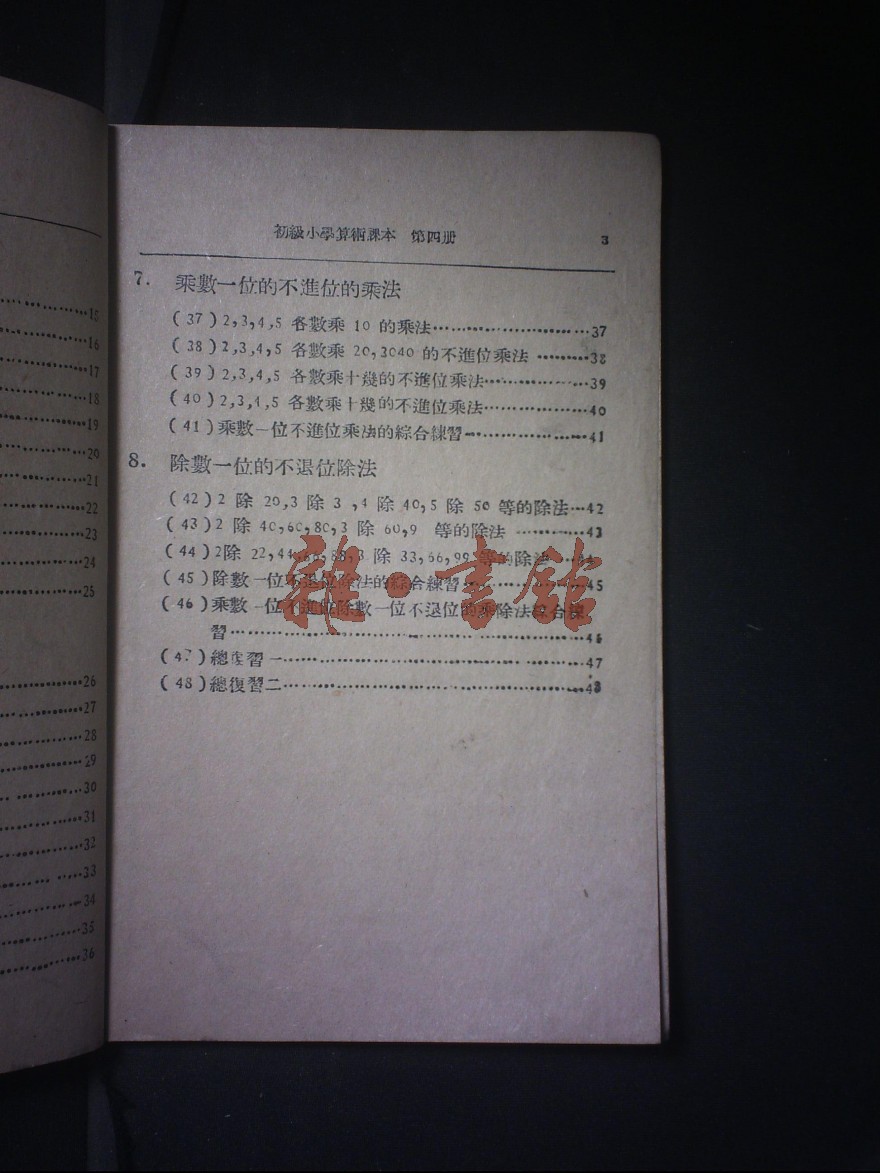 15
16
17
18
19
20
21
22
23
24
25
26
27
28
29
30
31
32
33
34
35
36
初級小學算術課本 第四册 3
7. 乘數一位的不進位的乘法
(37)2,3,4,5 各數乘 10 的乘法……………………37
(38)2,3,4,5 各數乘 20,3040 的不進位乘法 ………38
(39)2,3,4,5 各數乘十幾的不進位乘法……………39
(40)2,3,4,5 各數乘十幾的不進位乘法……………40
(41)乘數一位不進位乘法的綜合練習………………41
8. 除數一位的不退位除法
(42)2 除 20,3 除 3 ,4 除 40,5 除 50 等的除法…42
(43)2 除 40,60,80,3 除 60,9 等的除法 …………43
(44)2除 22,44,66,88,3 除 33,66,99 等的除法……44
(45)除數一位不退位除法的綜合練習………………45
(46)乘數一位不進位除數一位不退位的乘除法綜合練
習……………………………………………………46
(47)總復習一……………………………………………47
(48)總復習二……………………………………………48
雜·書館